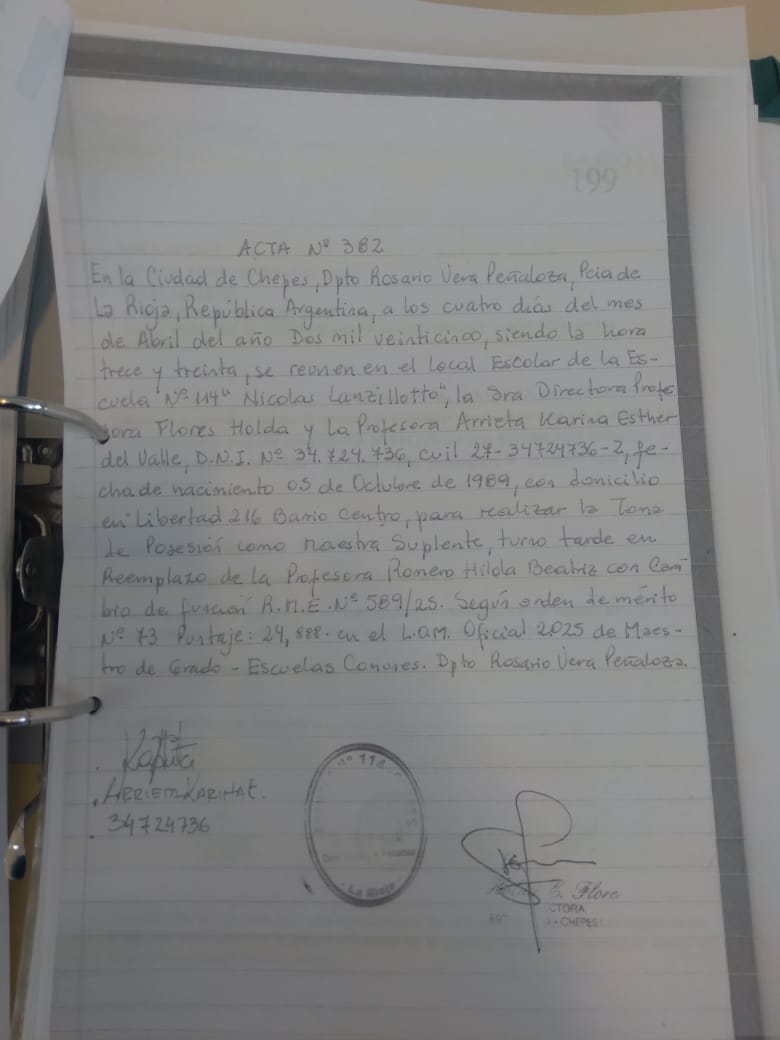 199
ACTA Nº 382
En la Ciudad de Chepes, Dpto Rosario Vera Peñaloza, Pcia de
La Rioja, República Argentina, a los cuatro días del mes
de Abril del año Dos mil veinticinco, siendo la hora
trece y treinta, se reunen en el local Escolar de la Es-
cuela "Nº 114" Nicolas Lanzillotto", la Sra Directora Profe
sora Flores Holda y La Profesora Arrieta Karina Esther
del Valle, D.N.I. Nº 34.724.736, cuil 27-34724736-2, fe-
cha de nacimiento 05 de Octubre de 1989, con domicilio
en Libertad 216 Barrio Centro, para realizar la Toma
de Posesión como Maestra Suplente, turno tarde en
Reemplazo de la Profesora Romero Hilda Beatriz con Cam
bio de función R.M.E. Nº 589/25. Según orden de mérito
Nº 73 Puntaje: 24,888. en el L.O.M. Oficial 2025 de Maes-
tro de Grado - Escuelas Comunes. Dpto Rosario Vera Peñaloza.
34724736
Nº 114
La Rioja
Flore
CTORA
- CHEPES